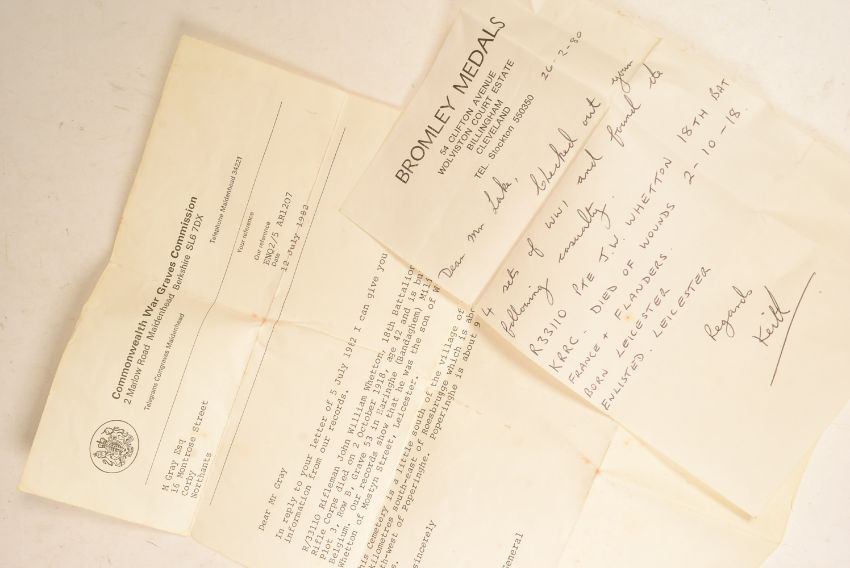 Commonwealth War Graves Commission
2 Marlow Road Maidenhead Berkshire SL6 7DX
Telegrams Congraves Maidenhead
Telephone Maidenhead 34221
Your reference
Our reference
ENQ2/5 AR1207
Date
12 July 1982
M Gray Esq
16 Montrose Street
Corby
Northants
Dear Mr Gray
In reply to your letter of 5 July 1982 I can give you
information from our records.
R/33110 Rifleman John William Whetton, 18th Battalion
Rifle Corps died on 2 October 1918, age 42 and is bu
Plot 3, Row B, Grave 53 in Haringhe (Bandaghem) Mili
Belgium. Our records show that he was the son of W
Whetton of Mostyn Street, Leicester.
his Cemetery is a little south of the village of
kilometres south-east of Roesbrugge which is abo
th-west of Poperinghe. Poperinghe is about 9
s.
sincerely
General
BROMLEY MEDALS
54 CLIFTON AVENUE
WOLVISTON COURT ESTATE
BILLINGHAM
CLEVELAND
TEL. Stockton 550350
26-2-80
Dear Mr Lake,
Checked out your
4 sets of WW1 and found the
following casualty.
R33110 PTE J.W. WHETTON 18TH BAT
KRRC. DIED OF WOUNDS 2-10-18.
FRANCE + FLANDERS.
BORN LEICESTER
ENLISTED. LEICESTER
Regards
Keith